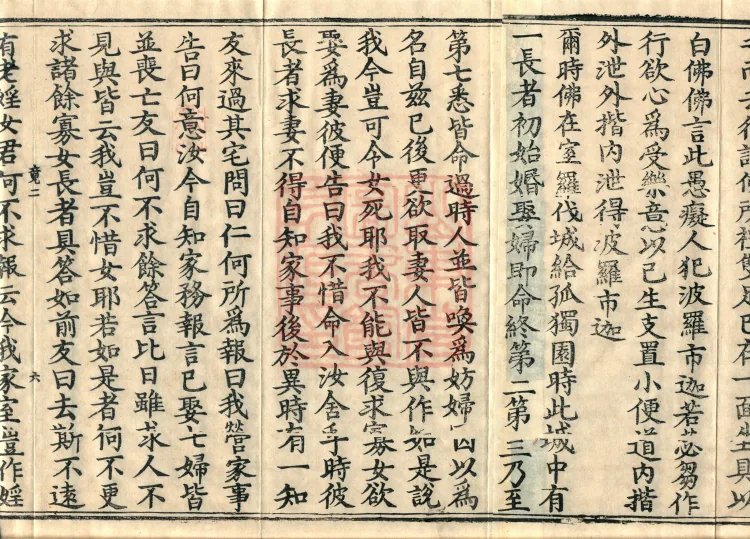 白佛佛言此愚癡人犯波羅市迦若苾芻作
行欲心爲受樂意以己生支置小便道內揩
外泄外揩內泄得波羅市迦
爾時佛在室羅伐城給孤獨園時此城中有
一長者初始婚娶婦即命終第二第三乃至
第七悉皆命過時人並皆喚爲妨婦因以爲
名自茲已後更欲取妻人皆不與作如是說
我今豈可令女死耶我不能與復求寡女欲
娶爲妻彼便告曰我不惜命入汝舍乎時彼
長者求妻不得自知家事後於異時有一知
友來過其宅問曰仁何所爲報曰我營家事
告曰何意汝今自知家務報言已娶七婦皆
並喪亡友曰何不求餘答言比日雖求人不
見與皆云我豈不惜女耶若如是者何不更
求諸餘寡女長者具答如前友曰去斯不遠
竟二 六
有老婬女君何不求報云今我家室豈作婬